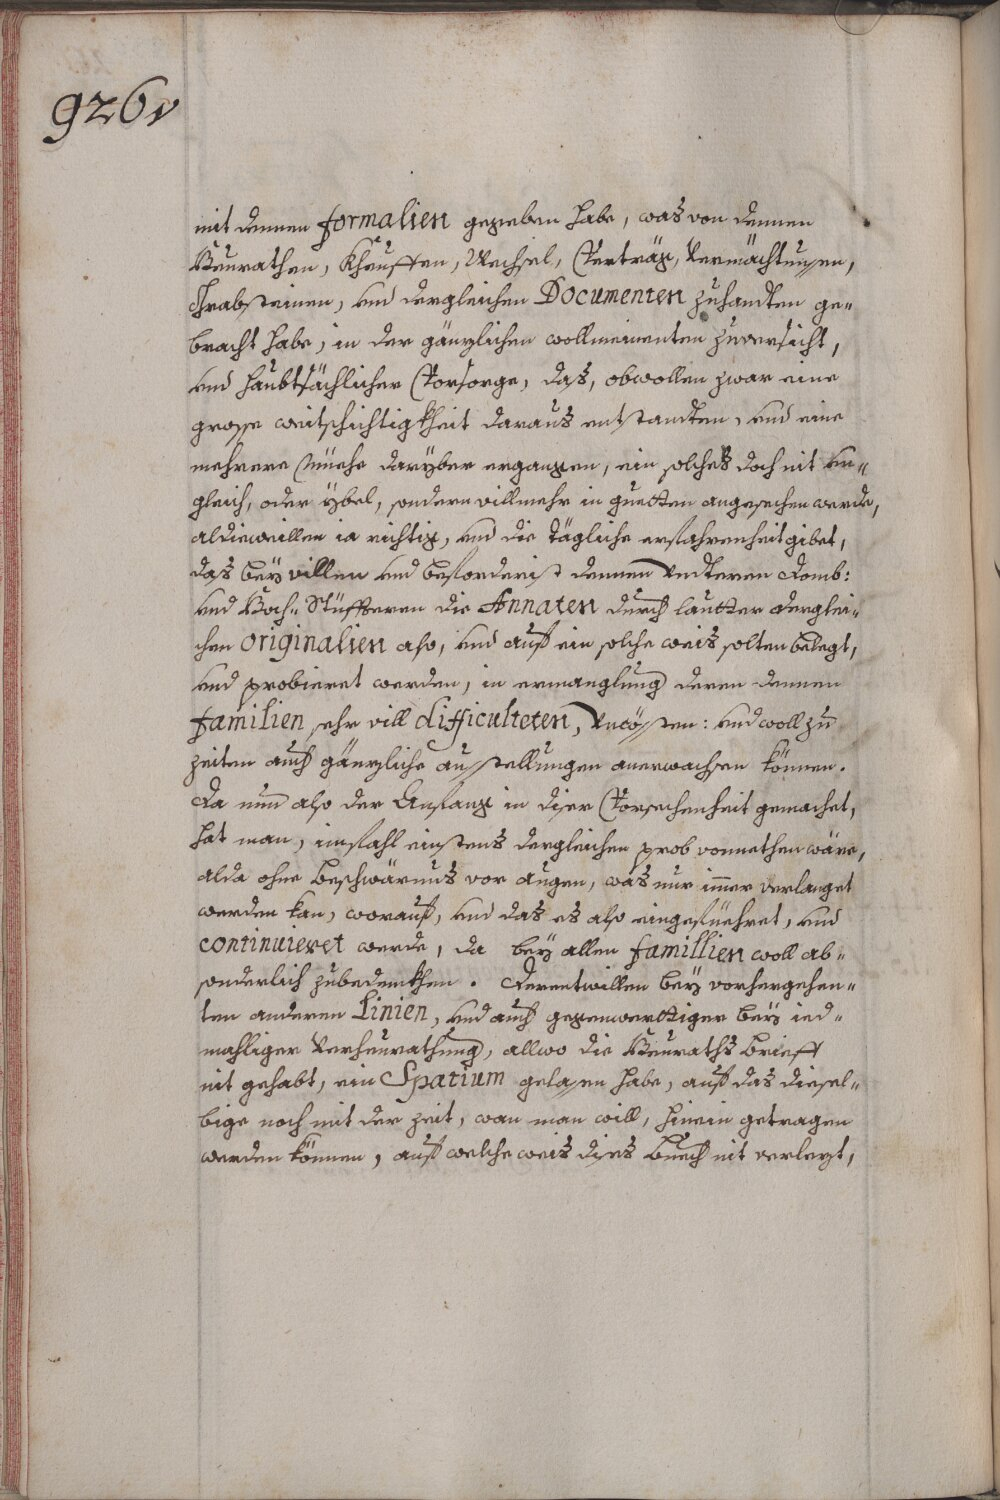 926v
mit dennen formalien gegeben habe, was von dennen
Heurathen, Kheuffen, Wechsel, Verträg, Vermächtungen,
Grabsteinen, und dergleichen Documenten zuhandten ge=
bracht habe, in der gänzlichen wollmeinenten zuversicht,
und haubtsächlicher Vorsorge, das, obwollen zwar eine
grosse weitschichtigkheit daraus entstandten, und eine
mehrere müehe daryber ergangen, ein solches doch nit un=
gleich, oder ybel, sondern villmehr in guetten angesechen werde,
aldieweillen ia richtig, und die tägliche erfahrenheit gibet,
das bey villen und beforderist dennen Undteren Domb:
und Hoch= Stüffteren die Annaten durch lautter derglei=
chen originalien also, und auf ein solche weis solten belegt,
und probieret werden, in ermanglung deren dennen
familien sehr vill difficulteten, Uncösten: und woll zu
zeiten auch gänzliche ausstellungen anerwachsen können.
Da nun also der Anfang in diser Vorsechenheit gemachet,
hat man, imfahl einstens dergleichen prob vonnethen wäre,
alda ohne beschwärnus vor augen, was nur immer verlanget
werden kan, worauf, und das es also eingefüehret, und
continuieret werde, da bey allen famillien woll ab=
sonderlich zubedenkhen. Derentwillen bey vorhergehen=
ten anderen Linien, und auch gegenwerttiger bey ied=
mahliger Verheurathung, allwo die Heuraths brieff
nit gehabt, ein Spatium gelasen habe, auf das diesel=
bige noch mit der zeit, wan man will, hinein getragen
werden können, auf welche weis dises buech nit verlezt,